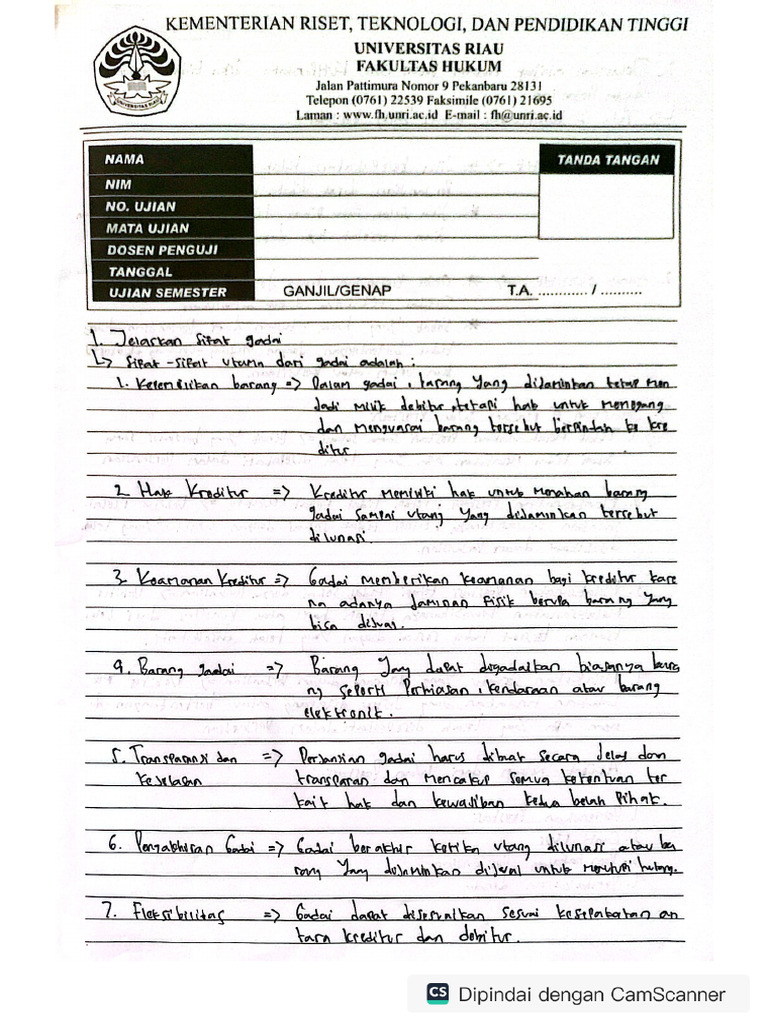 KEMENTERIAN RISET, TEKNOLOGI, DAN PENDIDIKAN TINGGI
UNIVERSITAS RIAU
FAKULTAS HUKUM
Jalan Pattimura Nomor 9 Pekanbaru 28131
Telepon (0761) 22539 Faksimile (0761) 21695
Laman : www.fh.unri.ac.id E-mail : fh@unri.ac.id
UNIVERSITAS RIAU
NAMA
TANDA TANGAN
NIM
NO. UJIAN
MATA UJIAN
DOSEN PENGUJI
TANGGAL
UJIAN SEMESTER GANJIL/GENAP T.A. ............ / ..........
1. Jelaskan sifat gadai
↳ Sifat-sifat utama dari gadai adalah :
1. Kepemilikan barang => Dalam gadai, barang yang dijaminkan tetap men
jadi milik debitur, tetapi hak untuk memegang
dan menguasai barang tersebut berpindah ke kre
ditur.
2. Hak Kreditur => Kreditur memiliki hak untuk menahan barang
gadai sampai utang yang dijaminkan tersebut
dilunasi.
3. Keamanan Kreditur => Gadai memberikan keamanan bagi kreditur kare
na adanya jaminan fisik berupa barang yang
bisa dijual.
4. Barang gadai => Barang yang dapat digadaikan biasanya bara
ng seperti perhiasan, kendaraan atau barang
elektronik.
5. Transparansi dan => Perjanjian gadai harus dibuat secara jelas dan
kejelasan transparan dan mencakup semua ketentuan ter
kait hak dan kewajiban kedua belah pihak.
6. Pengakhiran Gadai => Gadai berakhir ketika utang dilunasi atau ba
rang yang dijaminkan dijual untuk menutupi hutang.
7. Fleksibilitas => Gadai dapat disesuaikan sesuai kesepakatan an
tara kreditur dan debitur.
CS Dipindai dengan CamScanner